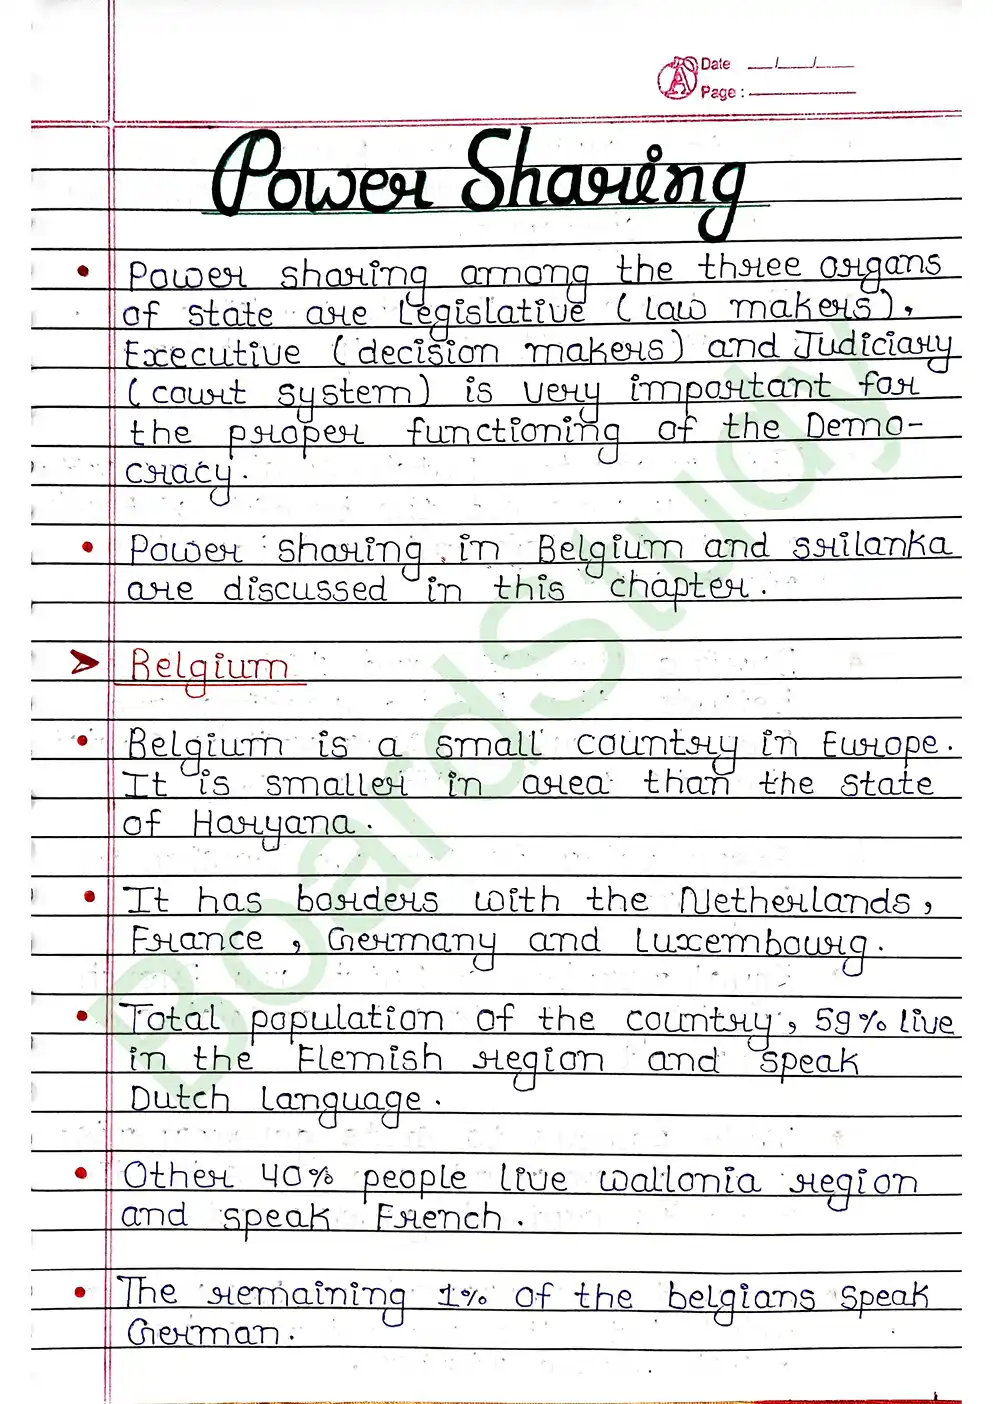 Date __/__/__
Page :
Power Sharing
• Power sharing among the three organs
of state are Legislative (law makers),
Executive (decision makers) and Judiciary
(court system) is very important for
the proper functioning of the Demo-
cracy.
• Power sharing in Belgium and srilanka
are discussed in this chapter.
➤ Belgium
• Belgium is a small country in Europe.
It is smaller in area than the state
of Haryana.
• It has borders with the Netherlands,
France, Germany and Luxembourg.
• Total population of the country, 59% live
in the Flemish region and speak
Dutch language.
• Other 40% people live wallonia region
and speak French.
• The remaining 1% of the belgians speak
German.
BoardStudy